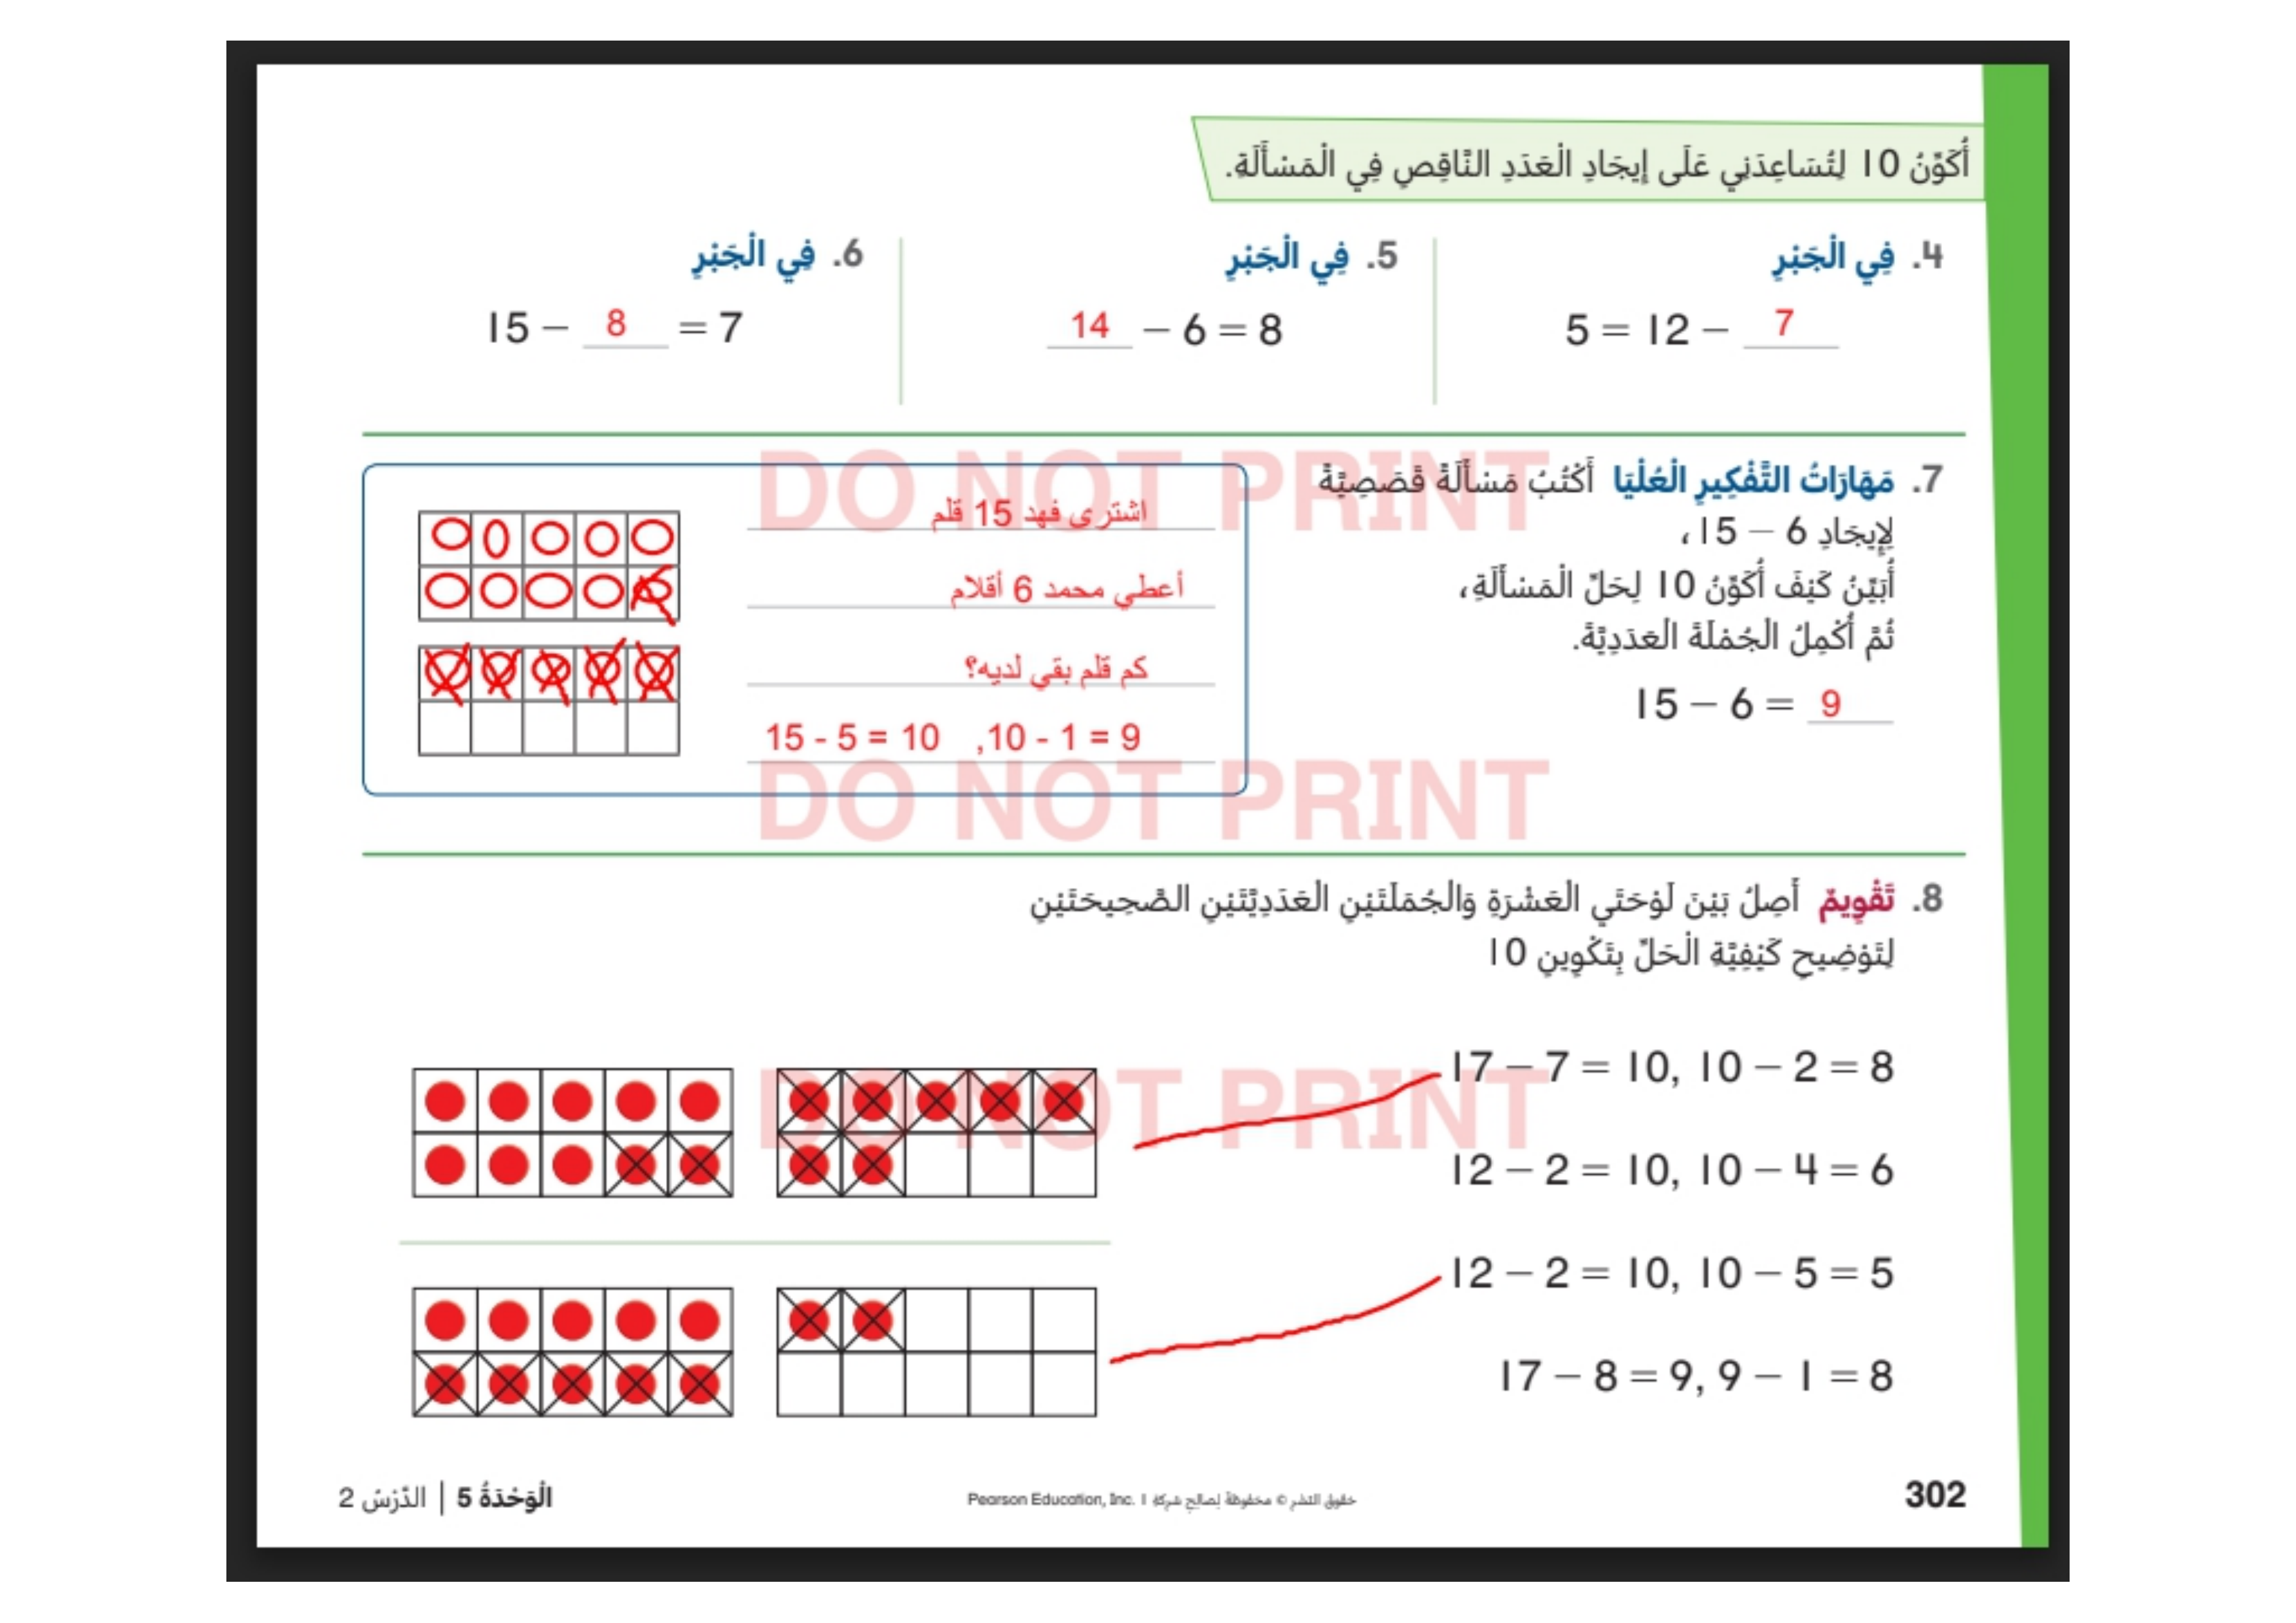 أُكَوِّنُ 10 لِتُسَاعِدَنِي عَلَى إِيجَادِ الْعَدَدِ النَّاقِصِ فِي الْمَسْأَلَةِ.
4. فِي الْجَبْرِ
5 = 12 − 7
5. فِي الْجَبْرِ
14 − 6 = 8
6. فِي الْجَبْرِ
15 − 8 = 7
7. مَهَارَاتُ التَّفْكِيرِ الْعُلْيَا أَكْتُبُ مَسْأَلَةً قَصَصِيَّةً
لِإِيجَادِ 6 − 15،
أُبَيِّنُ كَيْفَ أُكَوِّنُ 10 لِحَلِّ الْمَسْأَلَةِ،
ثُمَّ أُكْمِلُ الْجُمْلَةَ الْعَدَدِيَّةَ.
15 − 6 = 9
اشترى فهد 15 قلم
أعطي محمد 6 أقلام
كم قلم بقي لديه؟
15 - 5 = 10 ,10 - 1 = 9
DO NOT PRINT
DO NOT PRINT
8. تَقْوِيمٌ أَصِلُ بَيْنَ لَوْحَتَيِ الْعَشْرَةِ وَالْجُمْلَتَيْنِ الْعَدَدِيَّتَيْنِ الصَّحِيحَتَيْنِ
لِتَوْضِيحِ كَيْفِيَّةِ الْحَلِّ بِتَكْوِينِ 10
17 − 7 = 10, 10 − 2 = 8
DO NOT PRINT
12 − 2 = 10, 10 − 4 = 6
12 − 2 = 10, 10 − 5 = 5
17 − 8 = 9, 9 − 1 = 8
302
حقوق النشر © محفوظة لصالح شركة Pearson Education, Inc. 1
الْوَحْدَةُ 5 | الدَّرْسُ 2